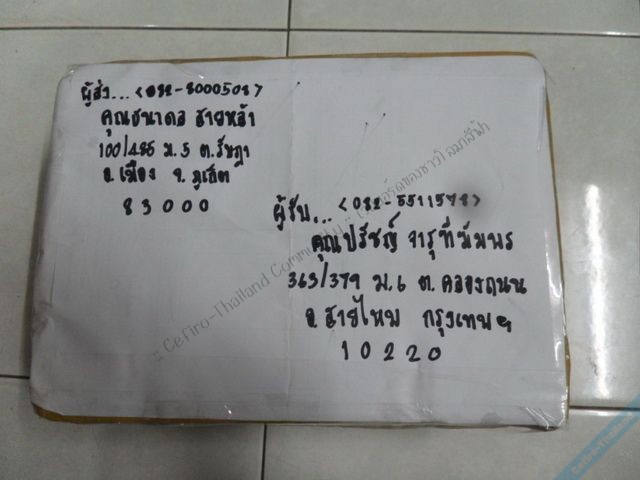 ผู้ส่ง... <082-8000508>
คุณธนาดล ชายหล้า
100/486 ม.5 ต.รัษฎา
อ.เมือง จ.ภูเก็ต
83000
ผู้รับ... <082-5511548>
คุณปรัชญ์ จารุทีฆัมพร
363/379 ม.6 ต.คลองถนน
อ.สายไหม กรุงเทพฯ
10220
:: Cefiro-Thailand Community ::